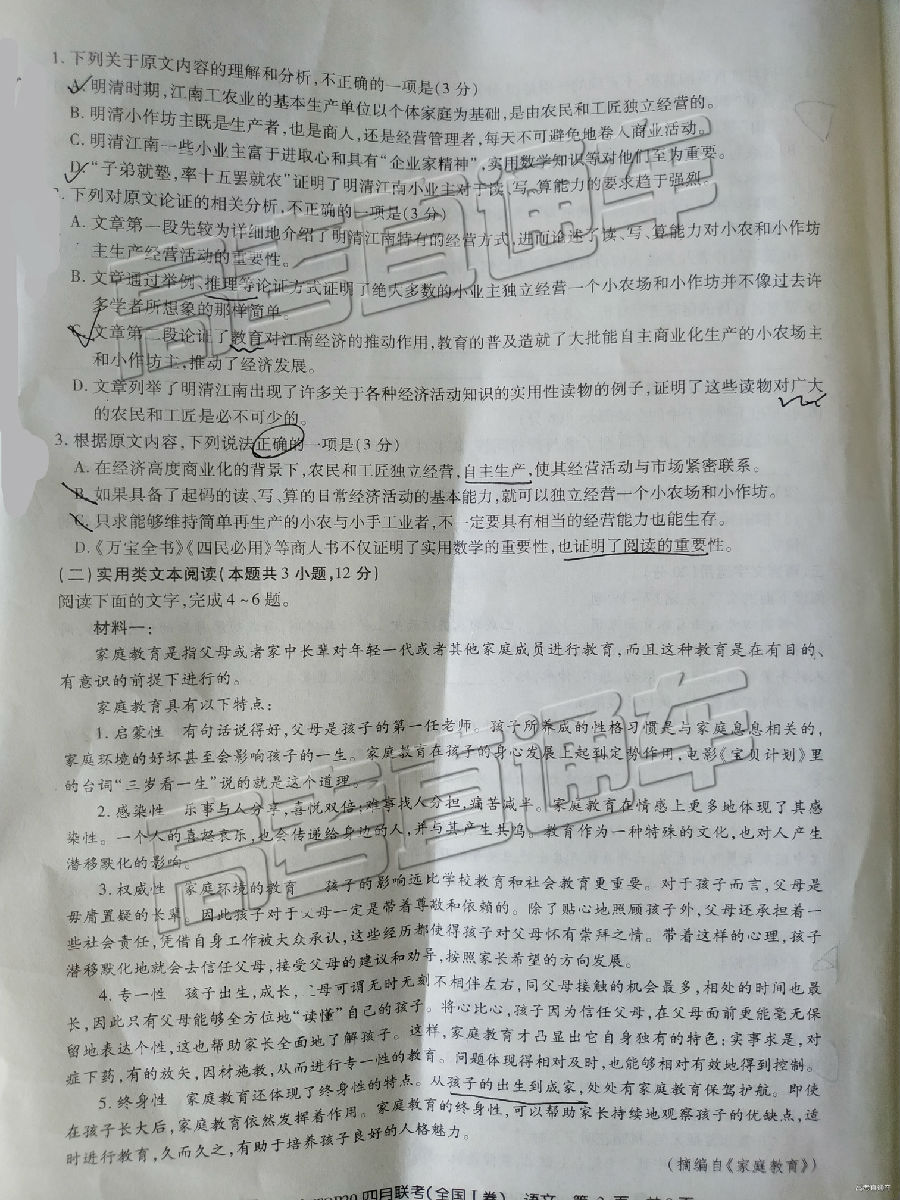 1. 下列关于原文内容的理解和分析,不正确的一项是(3 分)
A. 明清时期,江南工农业的基本生产单位以个体家庭为基础,是由农民和工匠独立经营的。
B. 明清小作坊主既是生产者,也是商人,还是经营管理者,每天不可避免地卷入商业活动。
C. 明清江南一些小业主富于进取心和具有“企业家精神”,实用数学知识等对他们至为重要。
D. “子弟就塾,率十五罢就农”证明了明清江南小业主对于读、写、算能力的要求趋于强烈。
下列对原文论证的相关分析,不正确的一项是(3 分)
A. 文章第一段先较为详细地介绍了明清江南特有的经营方式,进而论述了读、写、算能力对小农和小作坊
主生产经营活动的重要性。
B. 文章通过举例、推理等论证方式证明了绝大多数的小业主独立经营一个小农场和小作坊并不像过去许
多学者所想象的那样简单。
C. 文章第二段论证了教育对江南经济的推动作用,教育的普及造就了大批能自主商业化生产的小农场主
和小作坊主,推动了经济发展。
D. 文章列举了明清江南出现了许多关于各种经济活动知识的实用性读物的例子,证明了这些读物对广大
的农民和工匠是必不可少的。
3. 根据原文内容,下列说法正确的一项是(3 分)
A. 在经济高度商业化的背景下,农民和工匠独立经营,自主生产,使其经营活动与市场紧密联系。
B. 如果具备了起码的读、写、算的日常经济活动的基本能力,就可以独立经营一个小农场和小作坊。
C. 只求能够维持简单再生产的小农与小手工业者,不一定要具有相当的经营能力也能生存。
D.《万宝全书》《四民必用》等商人书不仅证明了实用数学的重要性,也证明了阅读的重要性。
(二)实用类文本阅读(本题共 3 小题,12 分)
阅读下面的文字,完成 4~6 题。
材料一:
家庭教育是指父母或者家中长辈对年轻一代或者其他家庭成员进行教育,而且这种教育是在有目的、
有意识的前提下进行的。
家庭教育具有以下特点:
1. 启蒙性 有句话说得好,父母是孩子的第一任老师。孩子所养成的性格习惯是与家庭息息相关的,
家庭环境的好坏甚至会影响孩子的一生。家庭教育在孩子的身心发展上起到定势作用,电影《宝贝计划》里
的台词“三岁看一生”说的就是这个道理。
2. 感染性 乐事与人分享,喜悦双倍;难事找人分担,痛苦减半。家庭教育在情感上更多地体现了其感
染性。一个人的喜怒哀乐,也会传递给身边的人,并与其产生共鸣。教育作为一种特殊的文化,也对人产生
潜移默化的影响。
3. 权威性 家庭环境的教育 孩子的影响远比学校教育和社会教育更重要。对于孩子而言,父母是
毋庸置疑的长辈 因此孩子对于父母一定是带着尊敬和依赖的。除了贴心地照顾孩子外,父母还承担着一
些社会责任,凭借自身工作被大众承认,这些经历都使得孩子对父母怀有崇拜之情。带着这样的心理,孩子
潜移默化地就会去信任父母,接受父母的建议和劝导,按照家长希望的方向发展。
4. 专一性 孩子出生,成长,母可谓无时无刻不相伴左右,同父母接触的机会最多,相处的时间也最
长,因此只有父母能够全方位地“读懂”自己的孩子。将心比心,孩子因为信任父母,在父母面前更能毫无保
留地表达个性,这也帮助家长全面地了解孩子。这样,家庭教育才凸显出它自身独有的特色;实事求是,对
症下药,有的放矢,因材施教,从而进行专一性的教育。问题体现得相对及时,也能够相对有效地得到控制。
5. 终身性 家庭教育还体现了终身性的特点。从孩子的出生到成家,处处有家庭教育保驾护航。即使
在孩子长大后,家庭教育依然发挥着作用。家庭教育的终身性,可以帮助家长持续地观察孩子的优缺点,适
时进行教育,久而久之,有助于培养孩子良好的人格魅力。
(摘编自《家庭教育》)
四月联考(全国Ⅰ卷) 语文 第 页
高考直通车
高考直通车